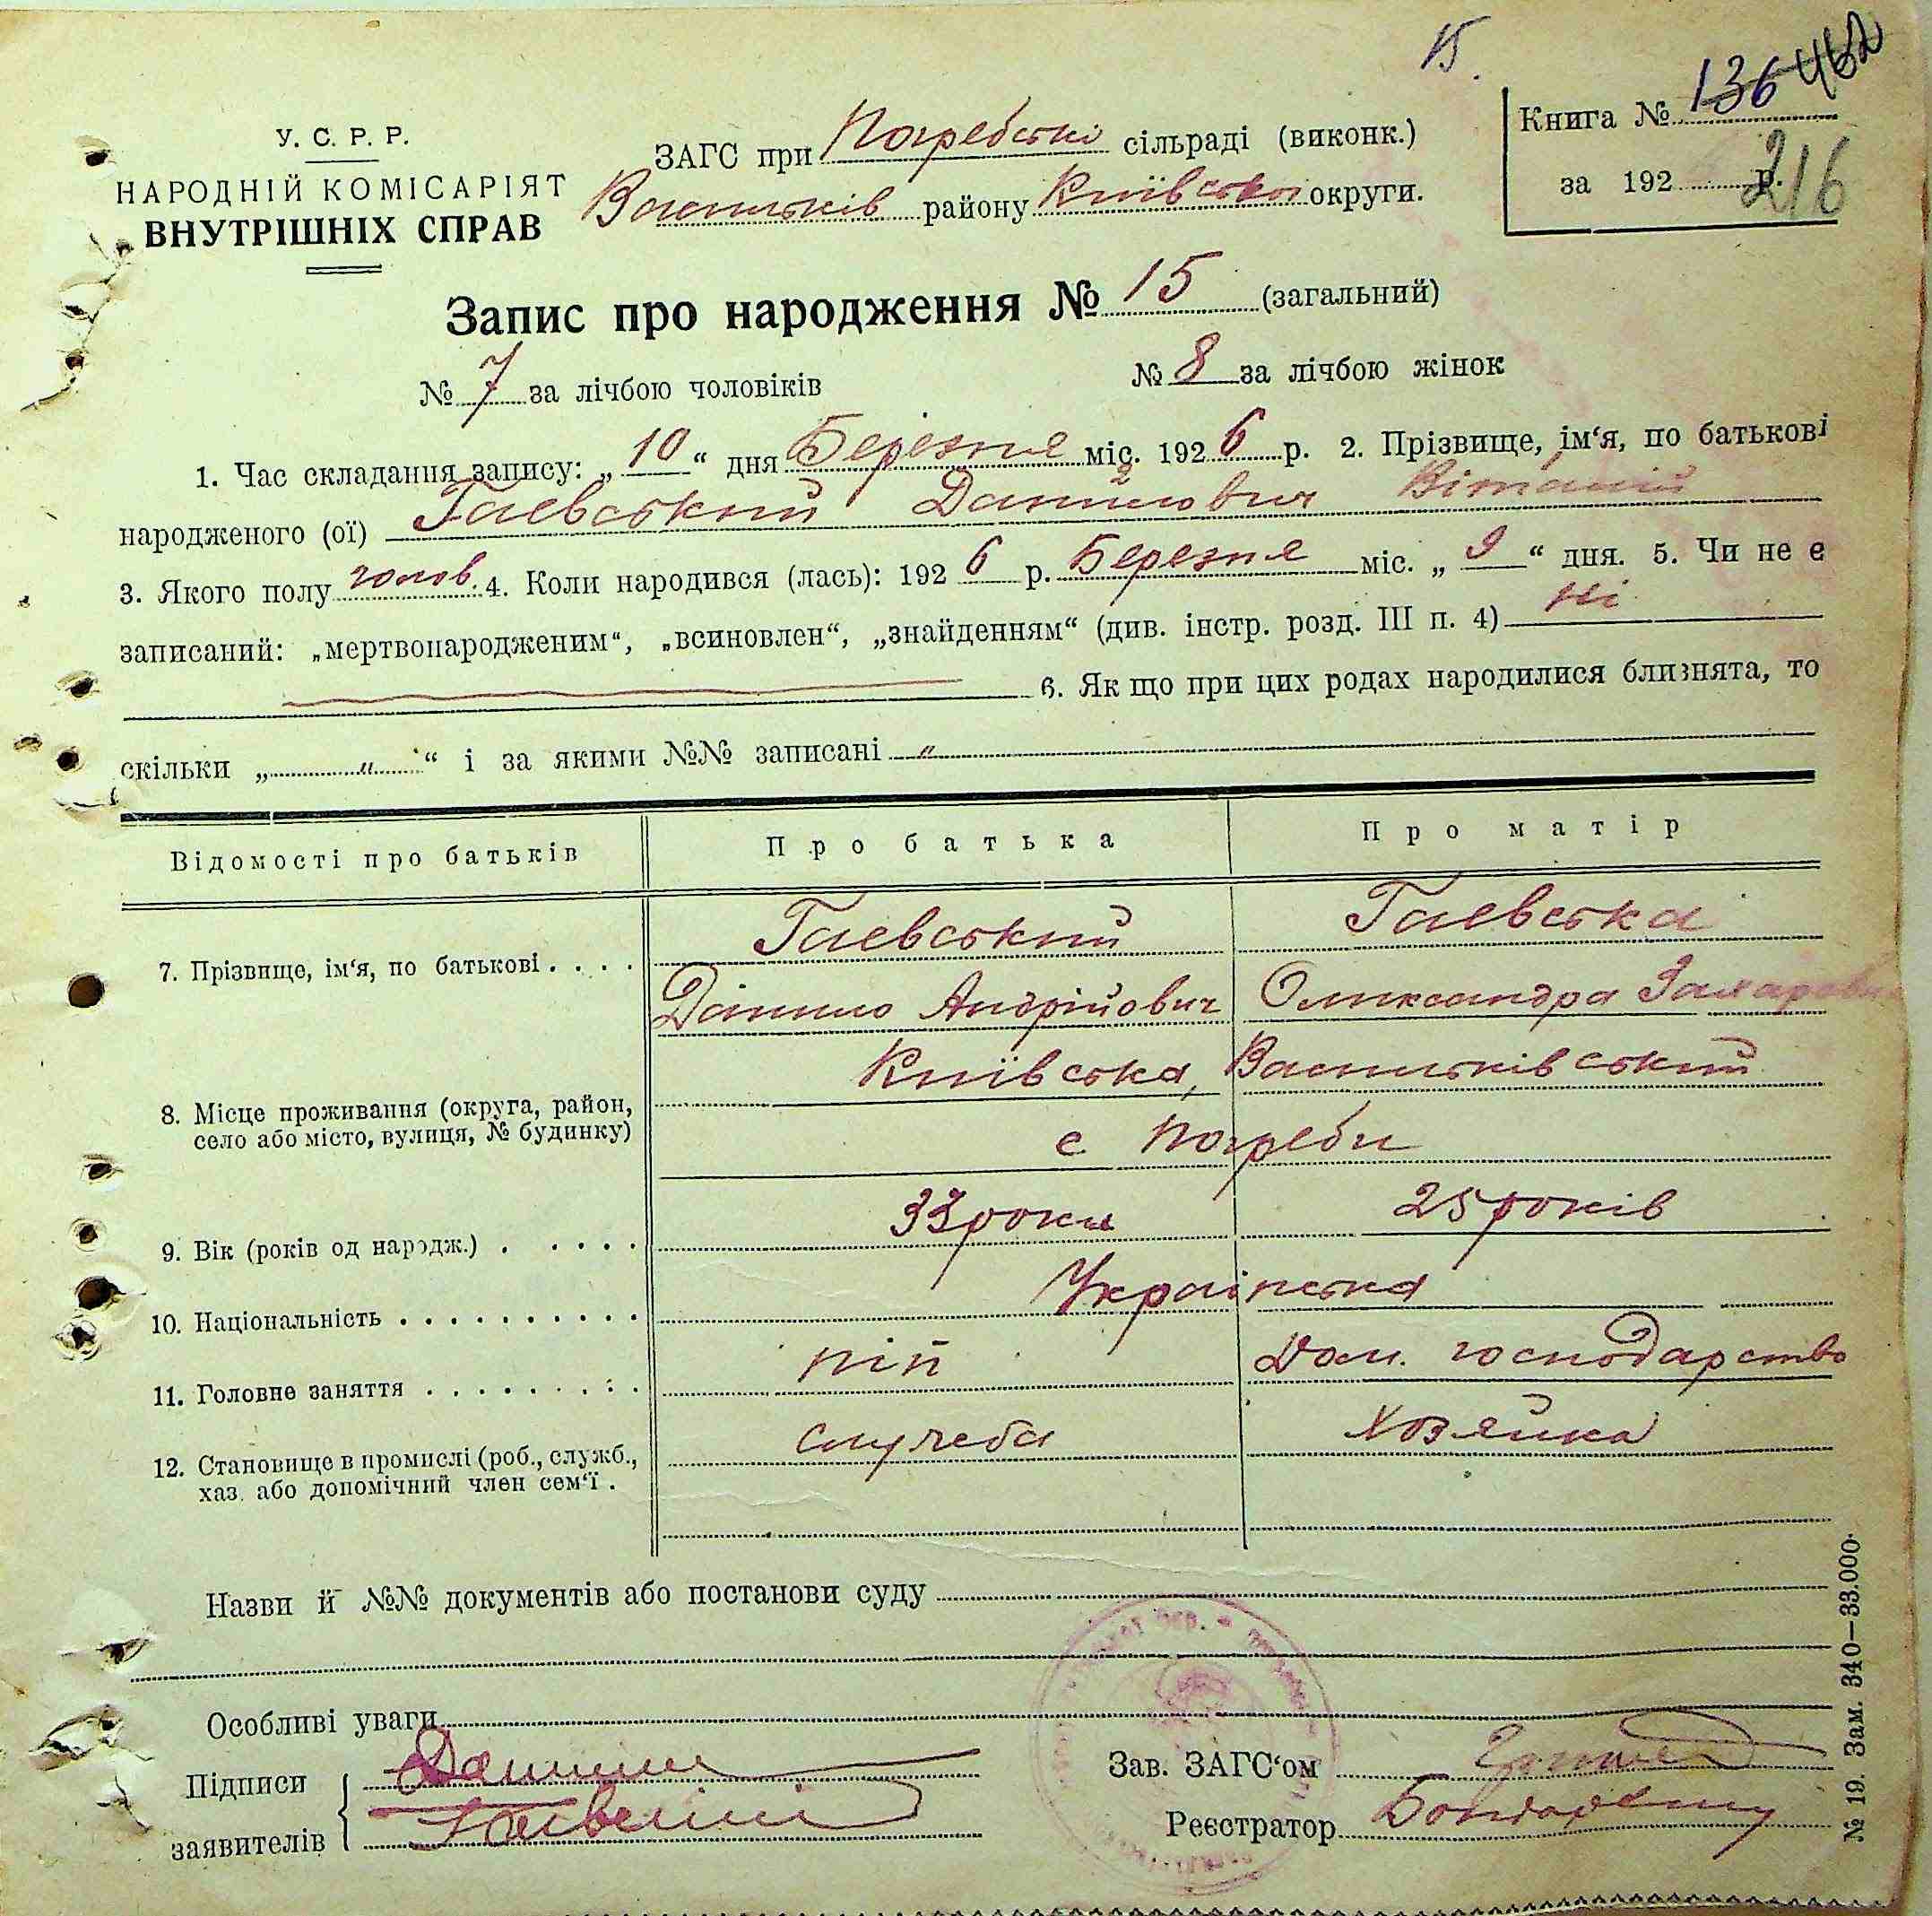 15.
Книга № 136 462
за 192 р.
216
У. С. Р. Р.
НАРОДНІЙ КОМІСАРІЯТ
ВНУТРІШНІХ СПРАВ
ЗАГС при Погребські сільраді (виконк.)
Васильків району Київської округи.
Запис про народження № 15 (загальний)
№ 7 за лічбою чоловіків № 8 за лічбою жінок
1. Час складання запису: „ 10 “ дня Березня міс. 192 6 р. 2. Прізвище, ім‘я, по батькові
народженого (ої) Гаевський Данилович Віталій
3. Якого полу чолов. 4. Коли народився (лась): 192 6 р. Березня міс. „ 9 “ дня. 5. Чи не є
записаний: „мертвонародженим“, „всиновлен“, „знайденням“ (див. інстр. розд. III п. 4) Ні
6. Як що при цих родах народилися близнята, то
скільки „ " “ і за якими №№ записані "
Відомості про батьків Про батька Про матір
7. Прізвище, ім‘я, по батькові . . . . Гаевський Гаевська
Данило Андрійович Олександра
8. Місце проживання (округа, район,
село або місто, вулиця, № будинку)
Київська, Васильківський
с Погреби
9. Вік (років од народж.) . . . . . 33 роки 25 років
10. Національність . . . . . . . . . . Українська
11. Головне заняття . . . . . . . . . піп Дом. господарство
12. Становище в промислі (роб., служб.,
хаз. або допомічний член сем‘ї .
служба Хозяйка
Назви й №№ документів або постанови суду
Особливі уваги
Підписи
заявителів
Зав. ЗАГС‘ом
Реєстратор
№ 19. Зам. 340—33.000.